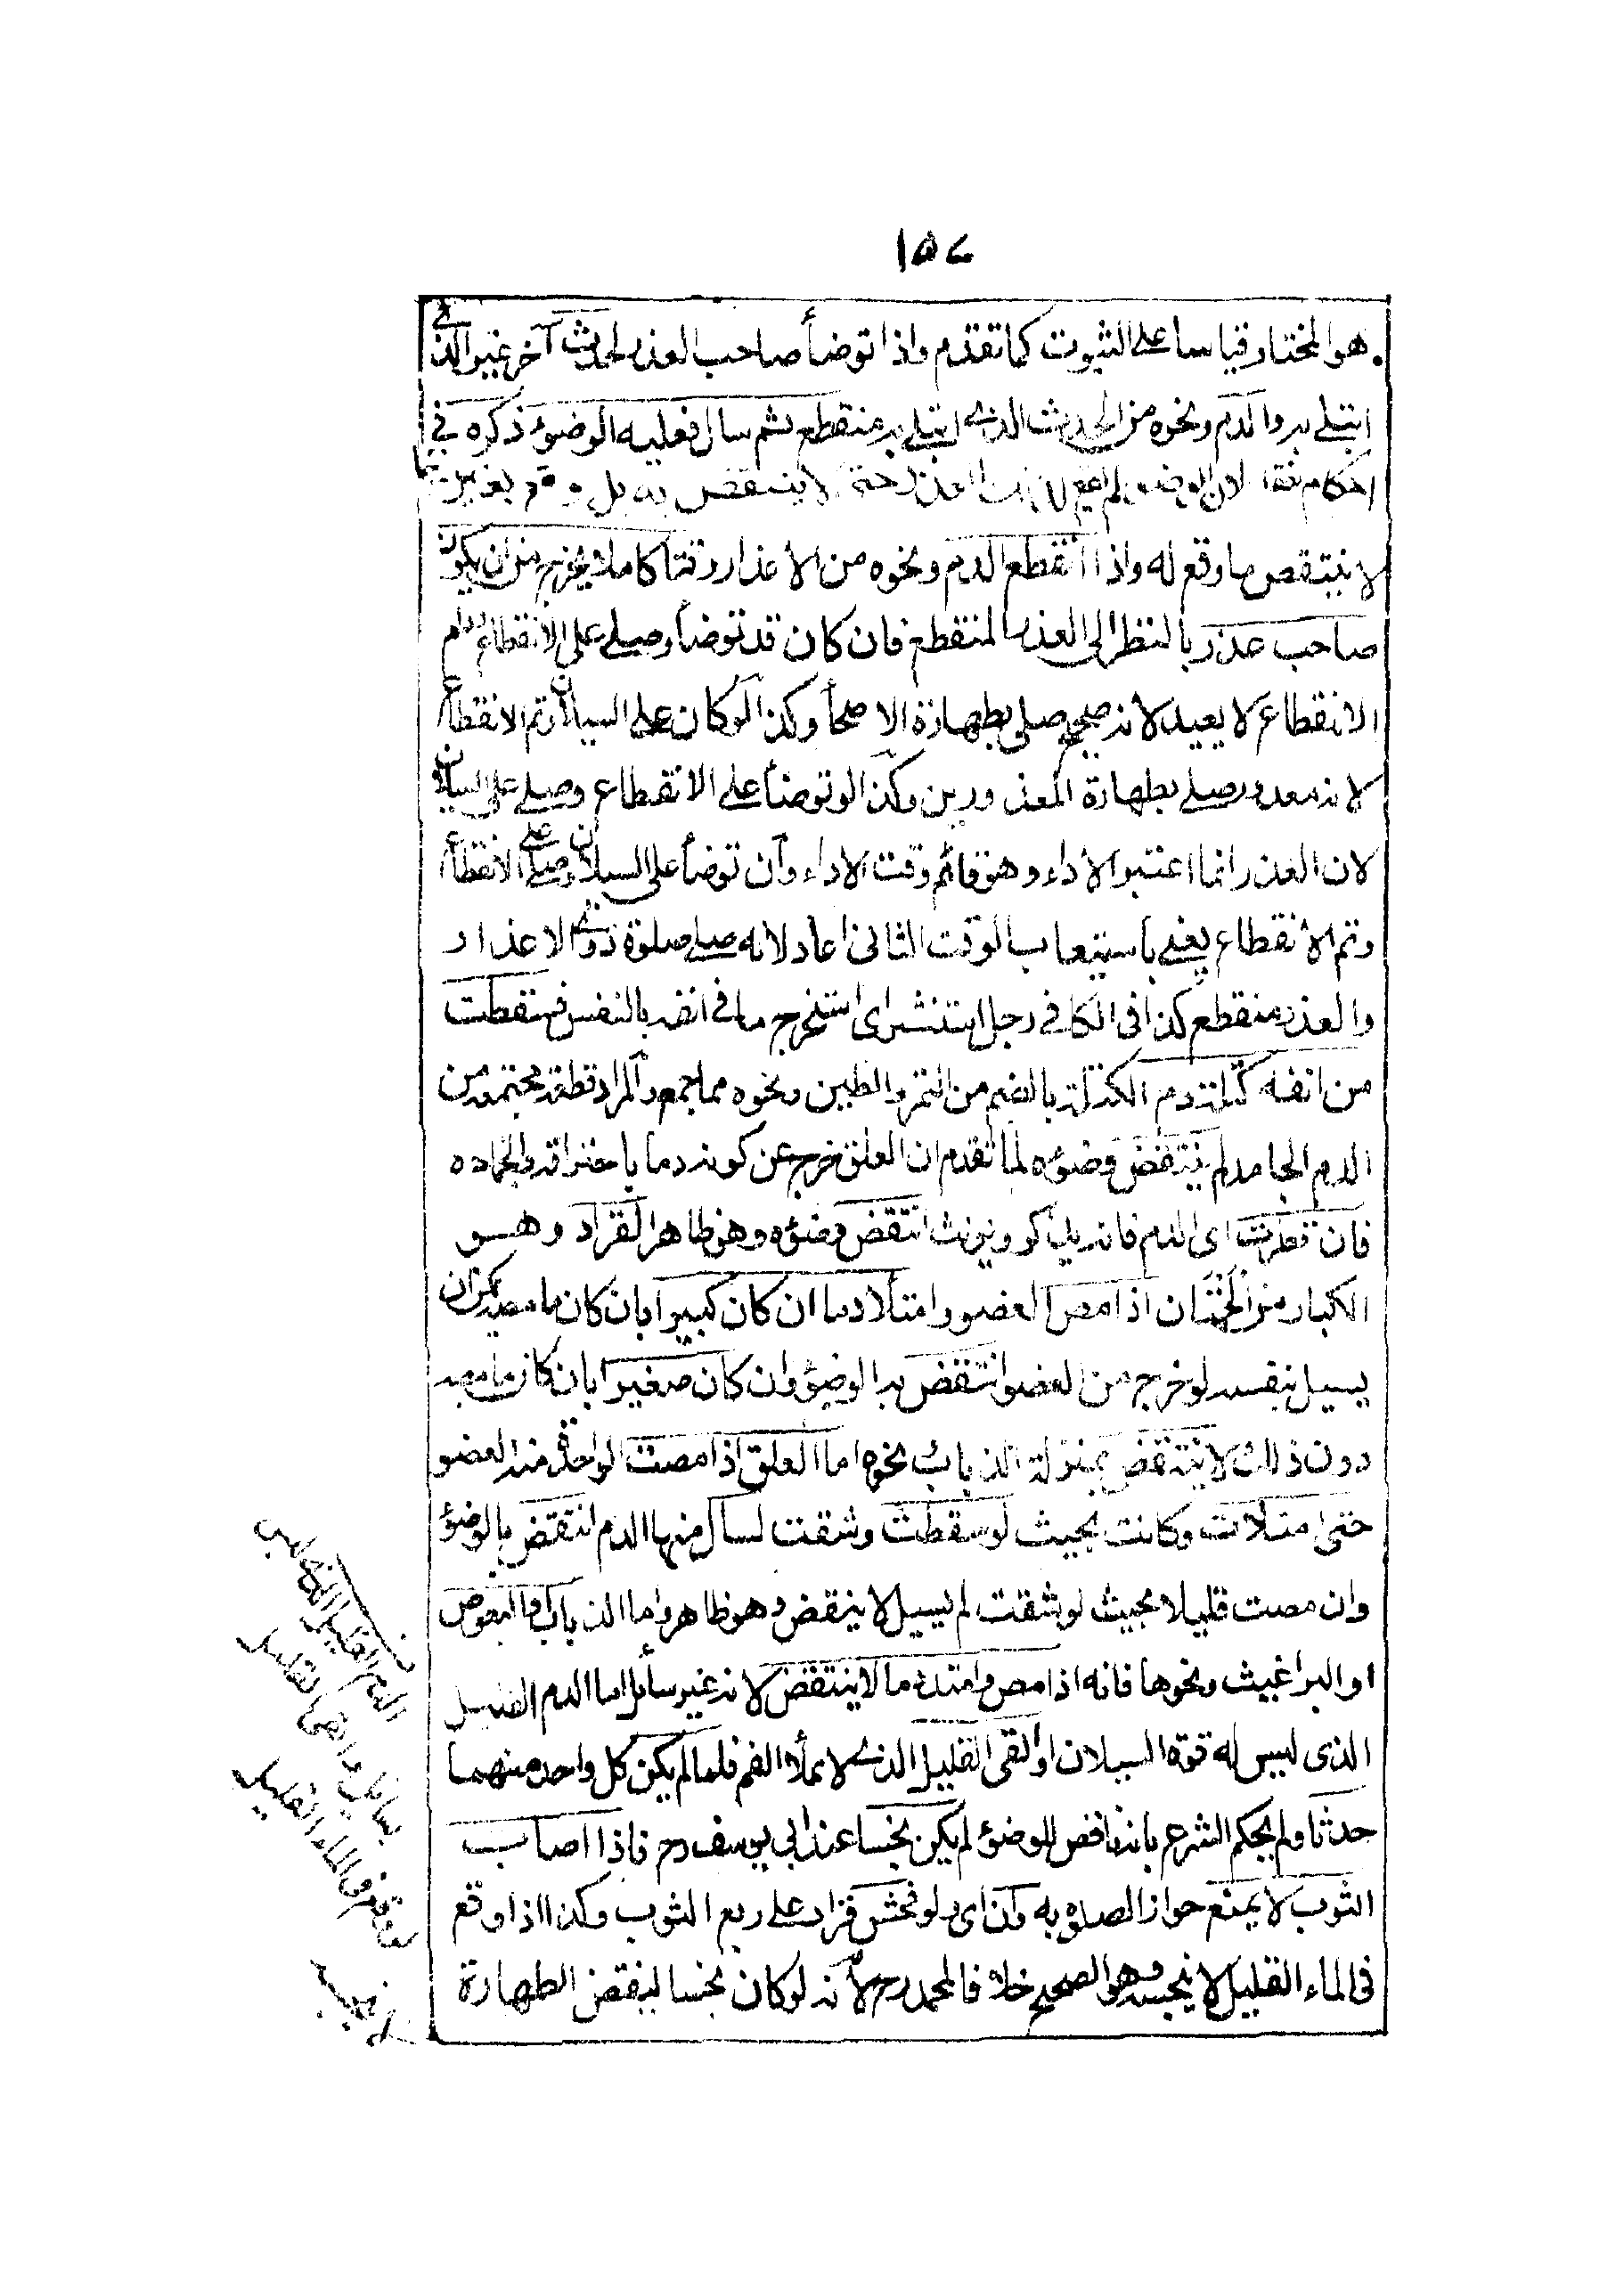 ١٥٧
هو المختار قياسا على الثبوت كما تقدم واذا توضأ صاحب العذر لحدث آخر غير الذى
ابتلى به والدم ونحوه من الحدث الذى ابتلى به منقطع ثم سال فعليه الوضوء ذكره فى
احكام الفقه لان الوضوء لم يقع لذلك العذر حتى لا ينتقض به بل وقع لغيره وانما
لا ينتقض بما وقع له واذا انقطع الدم ونحوه من الاعذار وقتا كاملا يخرج من ان يكون
صاحب عذر بالنظر الى العذر المنقطع فان كان قد توضأ وصلى على الانقطاع ودام
الانقطاع لا يعيد لانه صحيح صلى بطهارة الاصحأ وكذا لو كان على السيلان وتم الانقطاع
لانه معذور صلى بطهارة المعذورين وكذا لو توضأ على الانقطاع وصلى على السيلان
لان العذر انما اعتبر الاداء وهو قائم وقت الاداء وان توضأ على السيلان وصلى على الانقطاع
وتم الانقطاع يعنى باستيعاب الوقت الثانى اعاد لانه صلى صلوة ذوى الاعذار
والعذر منقطع كذا فى الكافى رجل استنثر اى استخرج ما فى انفه بالنفس فسقطت
من انفه كتلة دم الكتلة بالضم من التمر والطين ونحوه مما جمع والمراد قطعة مجتمعة من
الدم الجامد لم ينتقض وضوءه لما تقدم ان العلق خرج عن كونه دما باحتراقه وانجماده
فان قطرت اى الدم فانه يذكر ويؤنث انتقض وضوءه وهو ظاهر القراد وهو
الكبار من الحمنان اذا مص العضو وامتلأ دما ان كان كبيرا بان كان ما مصه يمكن ان
يسيل بنفسه لو خرج من العضو انتقض به الوضوء وان كان صغيرا بان كان ما مصه
دون ذلك لا ينتقض بمنزلة الذباب ونحوه اما العلق اذا مصت الواحدة منه العضو
حتى امتلأت وكانت بحيث لو سقطت وشقت لسال منها الدم انتقض بها الوضوء
وان مصت قليلا بحيث لو شقت لم يسيل لا ينتقض وهو ظاهر واما الذباب او البعوض
او البراغيث ونحوها فانه اذا مص وامتلأ دما لا ينتقض لانه غير سائل اما الدم القليل
الذى ليس له قوة السيلان او القى القليل الذى لا يملأ الفم فلما لم يكن كل واحد منهما
حدثا ولم يحكم الشرع بانه ناقض للوضوء لم يكن نجسا عند ابى يوسف رح فاذا اصاب
الثوب لا يمنع جواز الصلوة به وان اى ولو فحش فزاد على ربع الثوب وكذا اذا وقع
فى الماء القليل لا ينجسه وهو الصحيح خلافا لمحمد رح لانه لو كان نجسا لنقض الطهارة
الدم القليل الذى ليس